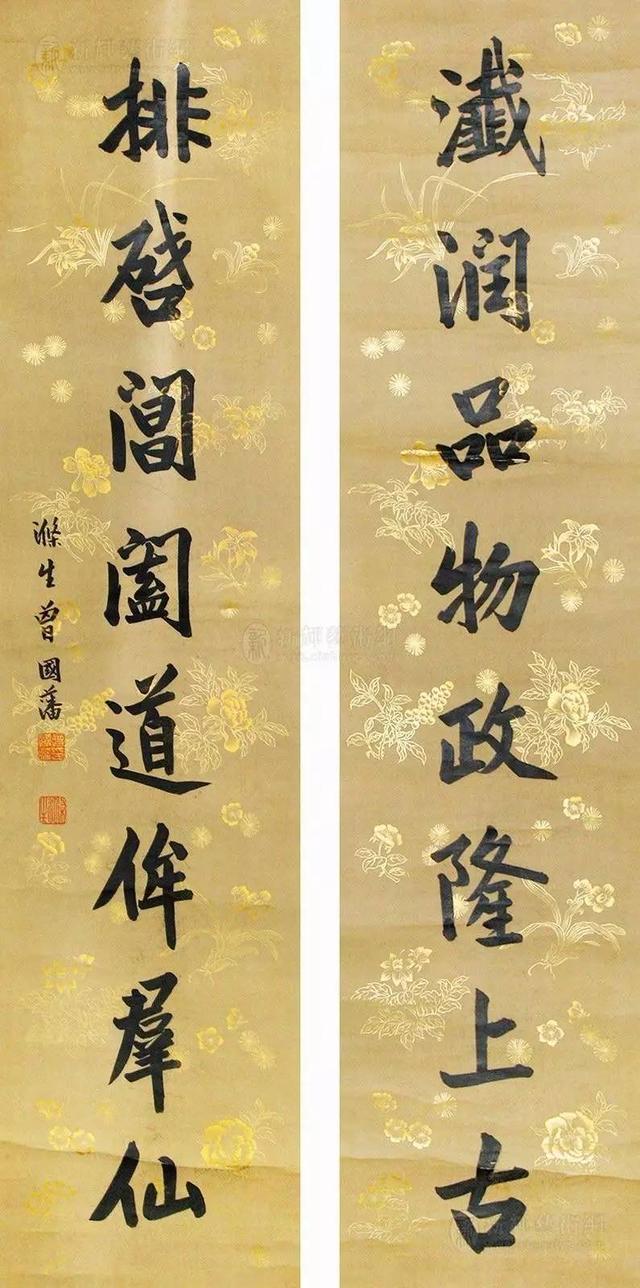 瀸润品物政隆上古
排啓閶阖道侔羣仙
滌生曾國藩